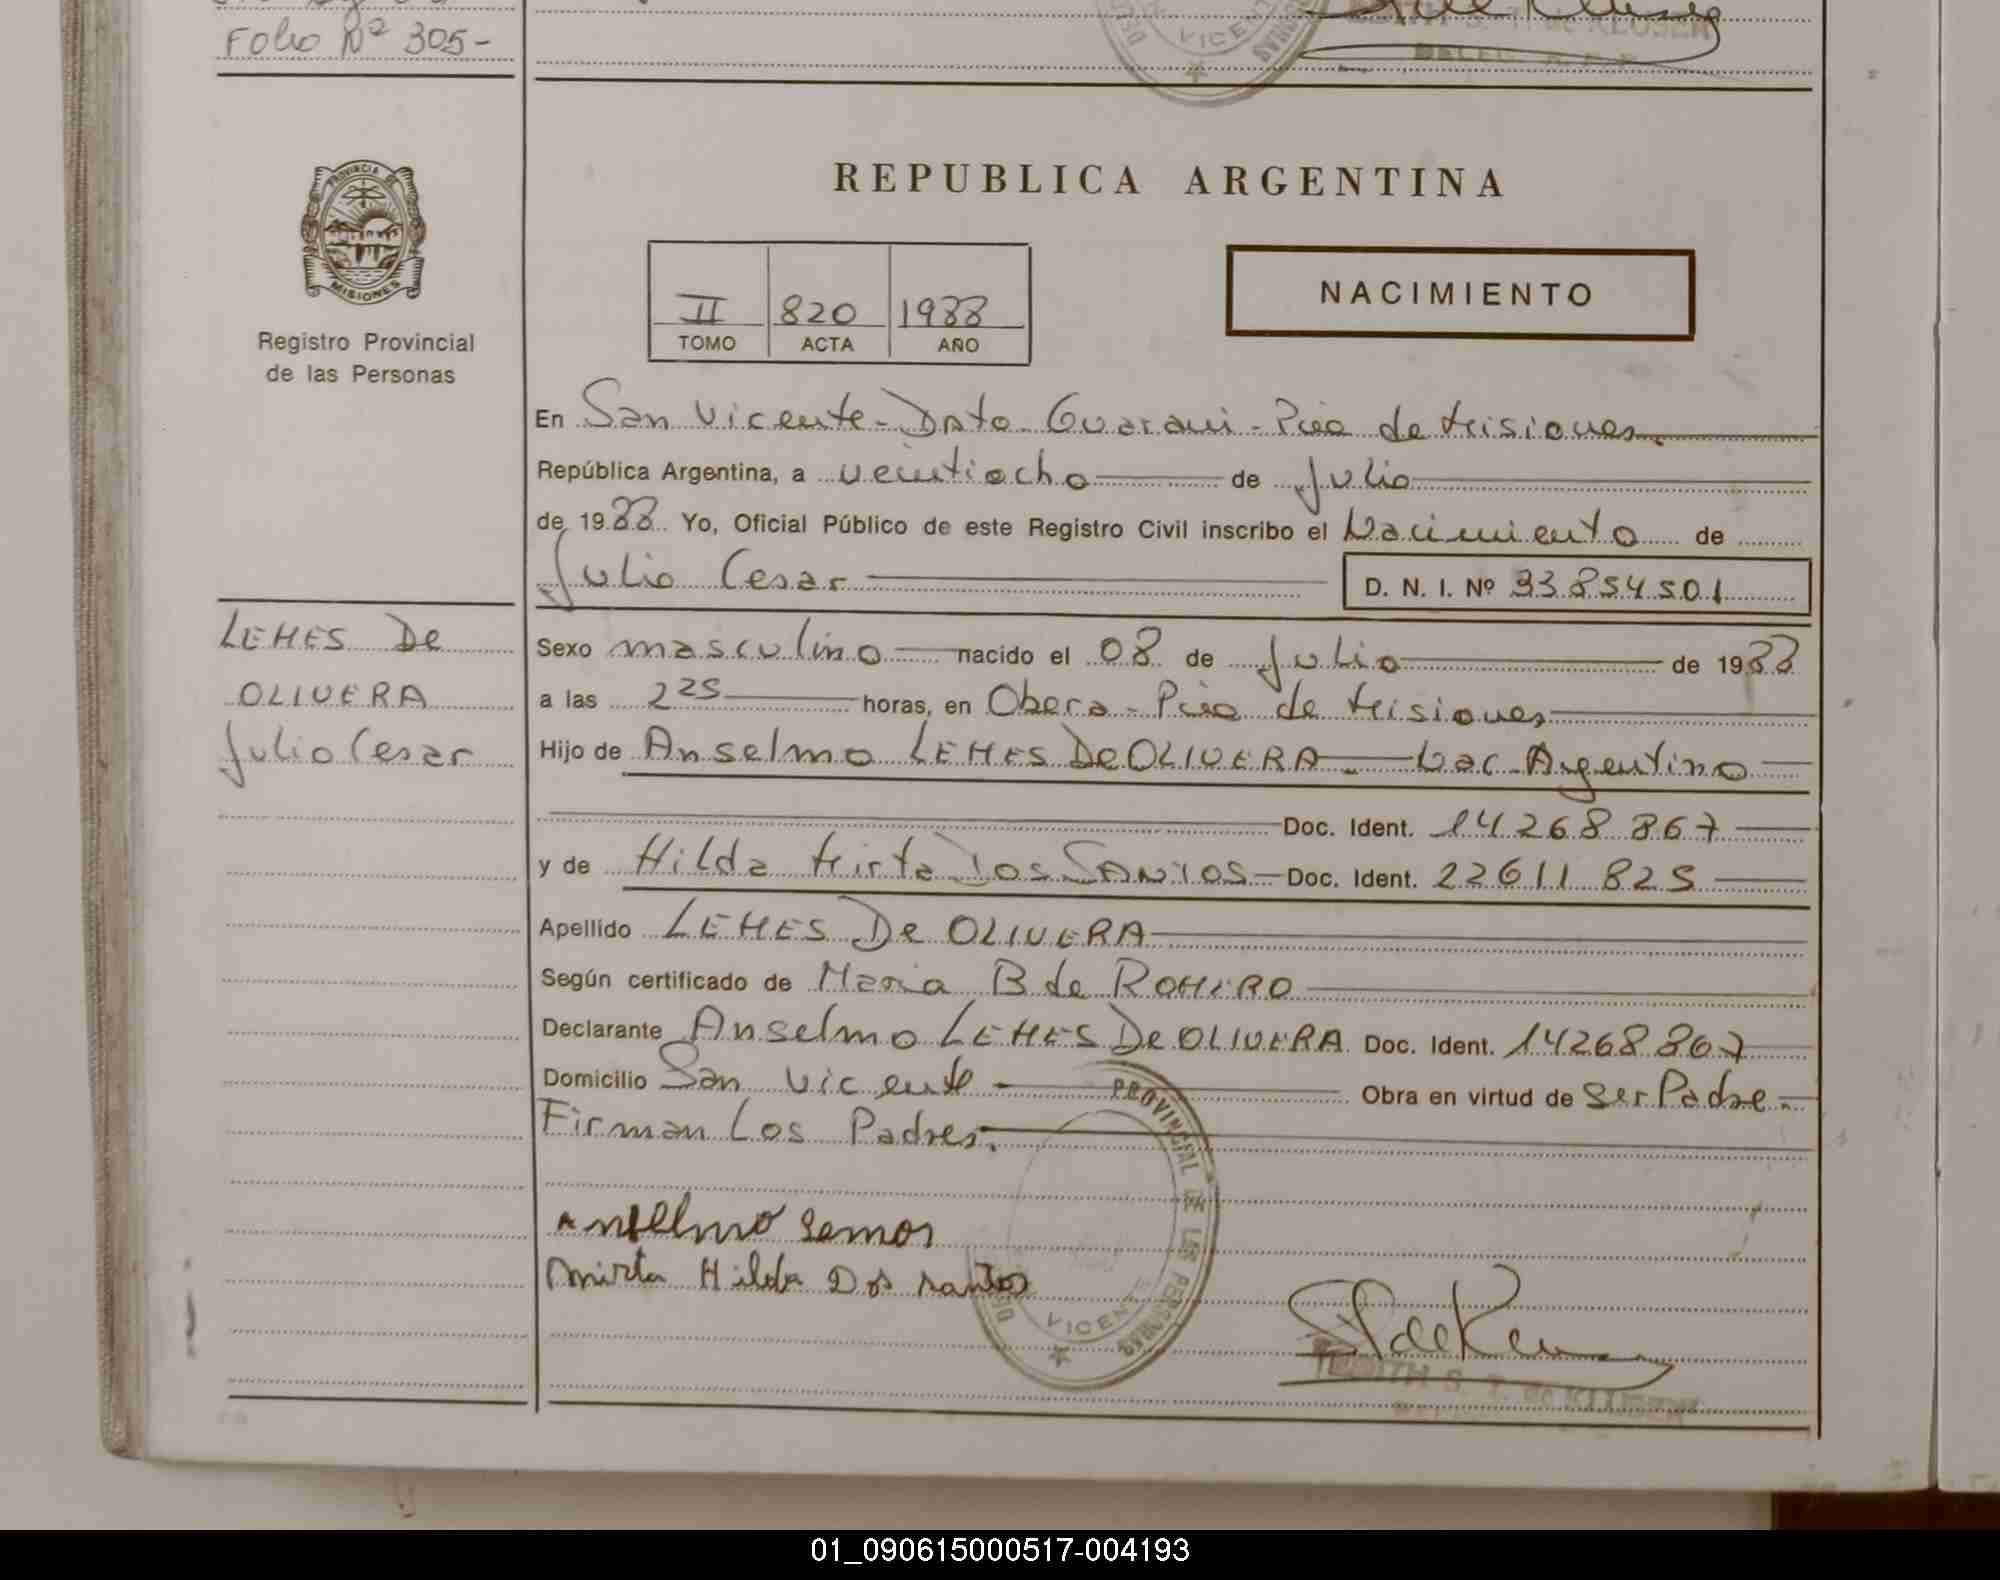 Folio Nº 305-
VICE
REPUBLICA ARGENTINA
PROVINCIA DE
MISIONES
Registro Provincial
de las Personas
NACIMIENTO
II 820 1988
TOMO ACTA AÑO
En San Vicente - Dpto. Guarani - Pcia de Misiones.
República Argentina, a veintiocho de Julio
de 1988. Yo, Oficial Público de este Registro Civil inscribo el Nacimiento de
Julio Cesar D. N. I. Nº 33.854.501
LEMES De
OLIVERA
Julio Cesar
Sexo masculino nacido el 08 de Julio de 1988
a las 2 25 horas, en Obera - Pcia de Misiones
Hijo de Anselmo LEMES De OLIVERA - Nac. Argentino
Doc. Ident. 14.268.867
y de Hilda Mirta Dos SANTOS Doc. Ident. 22611825
Apellido LEMES De OLIVERA
Según certificado de Maria B de ROMERO
Declarante Anselmo LEMES De OLIVERA Doc. Ident. 14268867
Domicilio San Vicente - Obra en virtud de Ser Padre.-
Firman Los Padres.
PROVINCIAL DE LAS PERSONAS
VICENTE
Anselmo Lemos
Mirta Hilda Dos Santos
S. T. de KLUSER
01_090615000517-004193